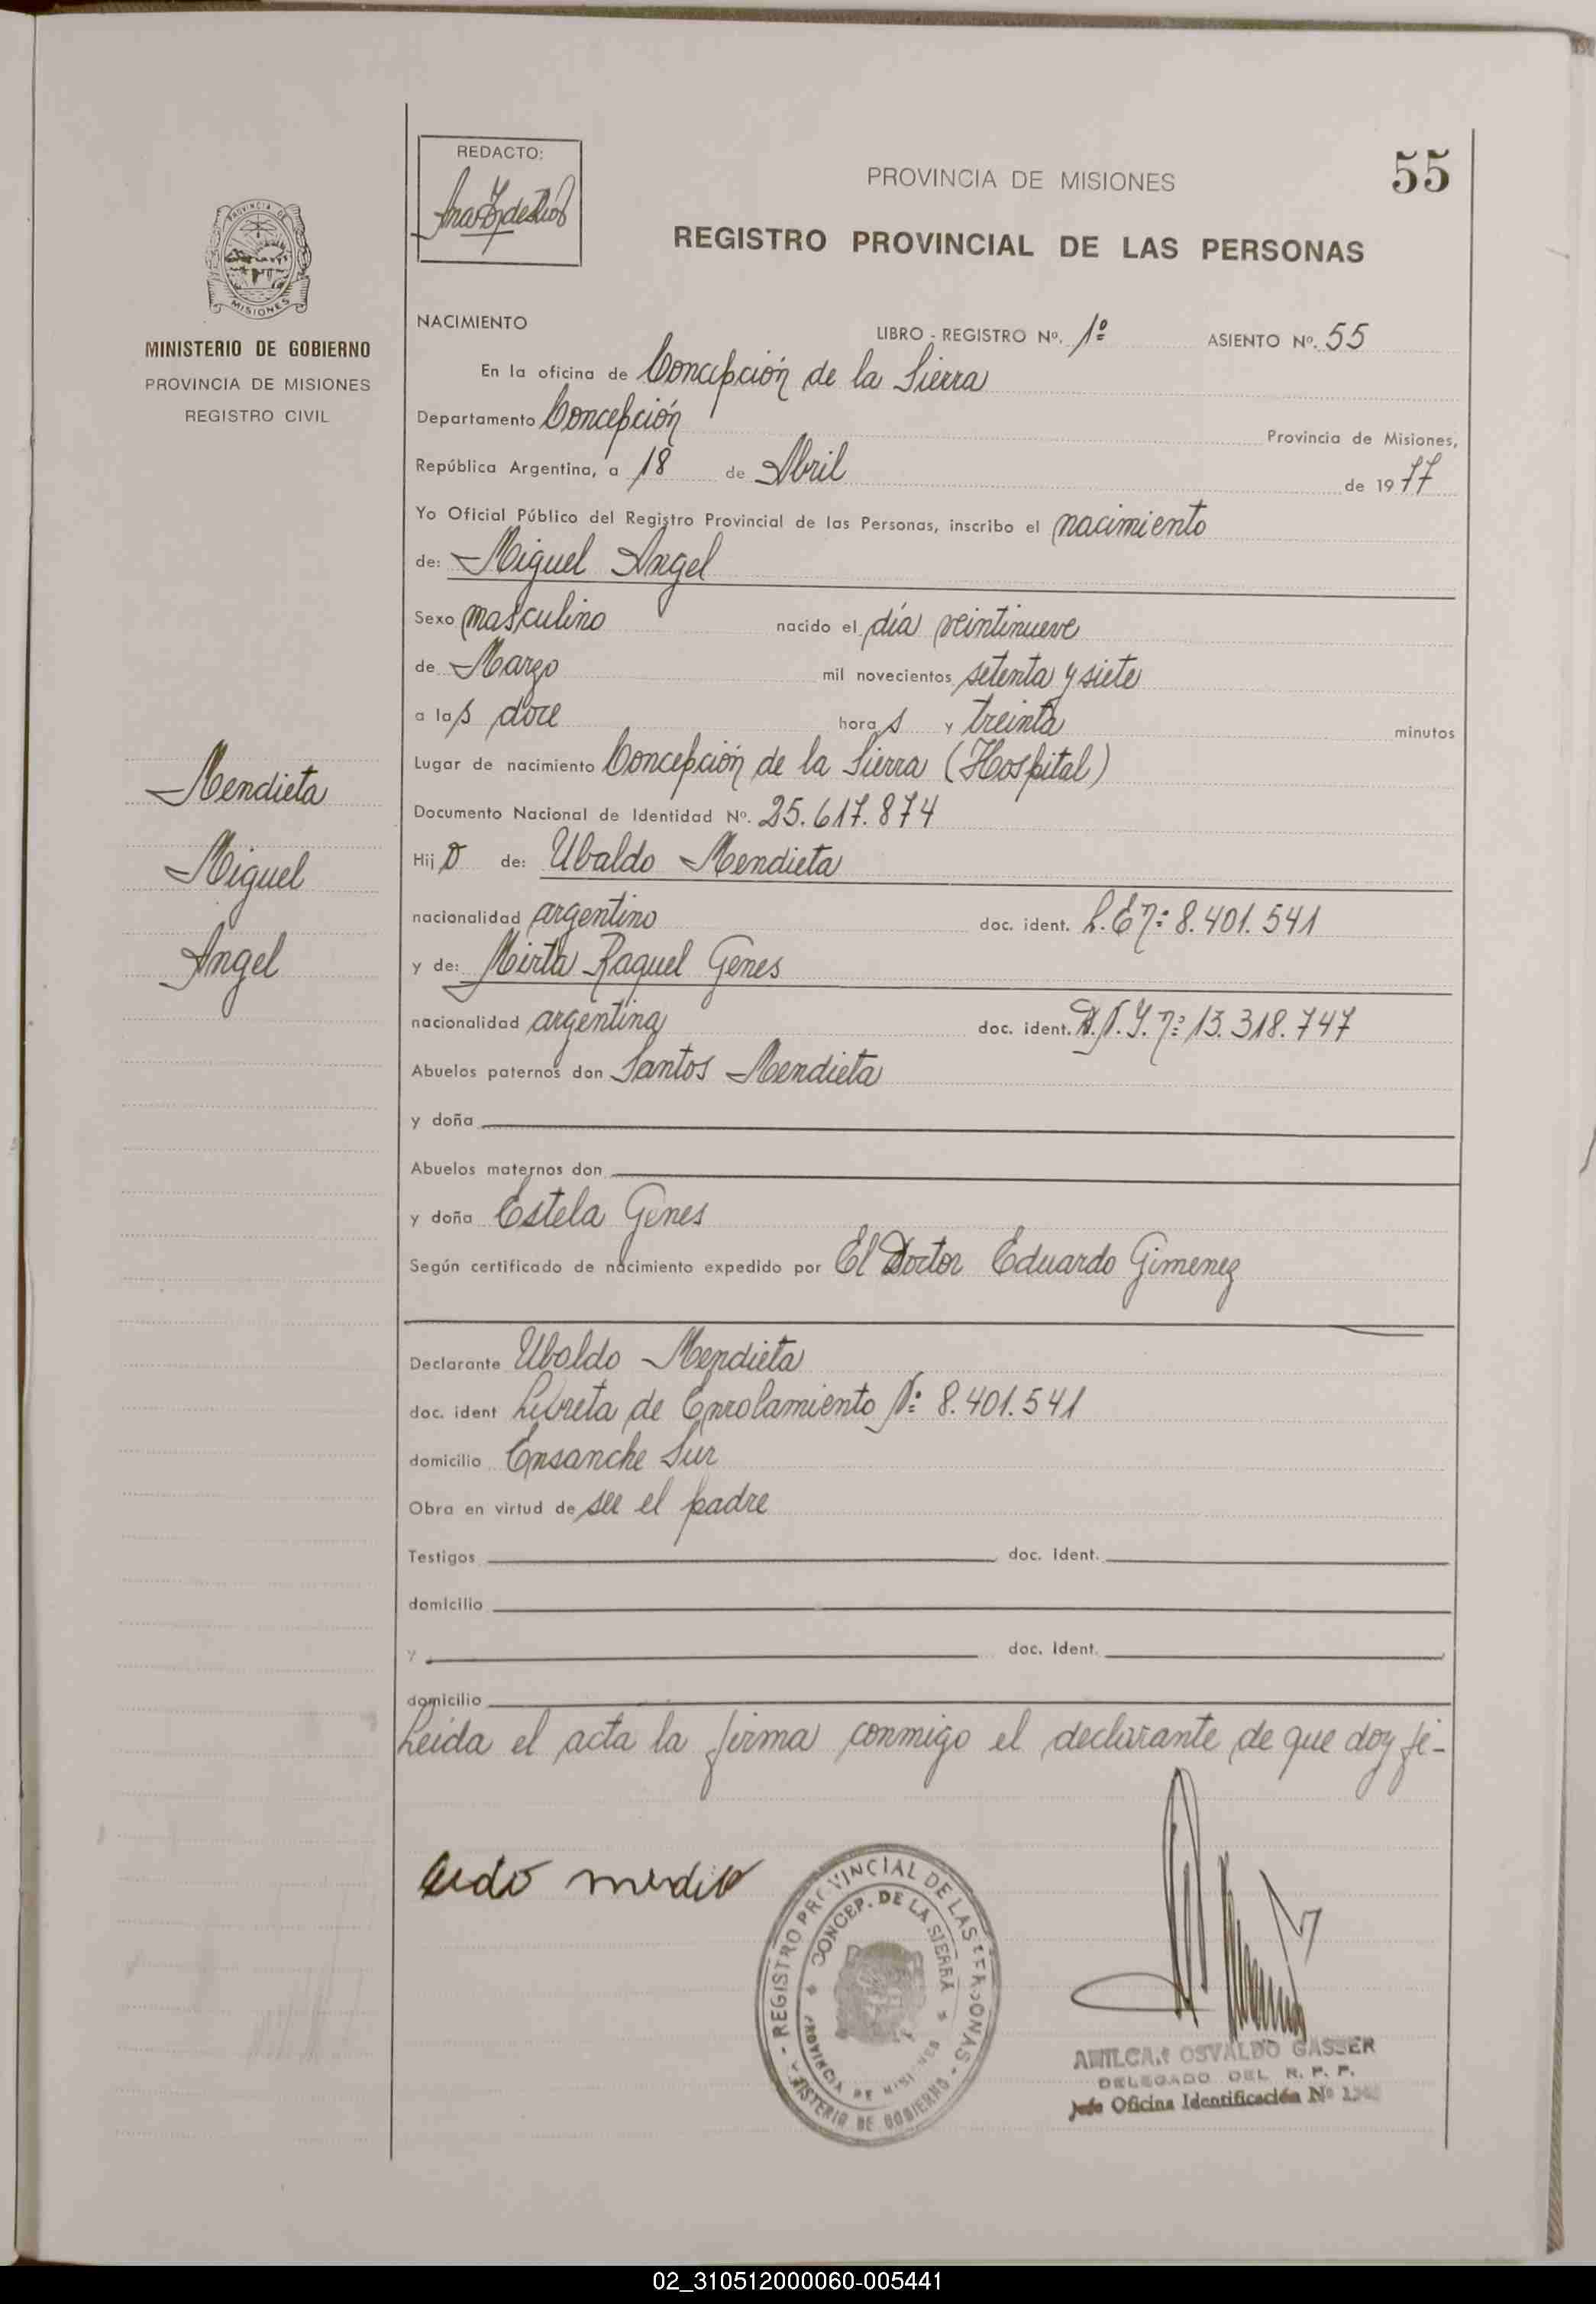 REDACTO:
PROVINCIA DE MISIONES
55
REGISTRO PROVINCIAL DE LAS PERSONAS
PROVINCIA DE
MISIONES
MINISTERIO DE GOBIERNO
PROVINCIA DE MISIONES
REGISTRO CIVIL
NACIMIENTO
LIBRO - REGISTRO Nº. 1º ASIENTO Nº. 55
En la oficina de Concepción de la Sierra
Departamento Concepción Provincia de Misiones,
República Argentina, a 18 de Abril de 1977
Yo Oficial Público del Registro Provincial de las Personas, inscribo el nacimiento
de: Miguel Angel
Sexo masculino nacido el día veintinueve
de Marzo mil novecientos setenta y siete
a las doce horas y treinta minutos
Lugar de nacimiento Concepción de la Sierra (Hospital)
Documento Nacional de Identidad Nº. 25.617.874
Hijo de: Ubaldo Mendieta
nacionalidad argentino doc. ident. L.E nº 8.401.541
y de: Mirta Raquel Genes
nacionalidad argentina doc. ident. D.N.I. nº 13.318.747
Abuelos paternos don Santos Mendieta
y doña
Abuelos maternos don
y doña Estela Genes
Según certificado de nacimiento expedido por El Doctor Eduardo Gimenez
Declarante Ubaldo Mendieta
doc. ident Libreta de Enrolamiento Nº 8.401.541
domicilio Ensanche Sur
Obra en virtud de ser el padre
Testigos doc. ident.
domicilio
y doc. ident.
domicilio
Leida el acta la firma conmigo el declarante de que doy fe-
Mendieta
Miguel
Angel
REGISTRO PROVINCIAL DE LAS PERSONAS
CONCEP. DE LA SIERRA
PROVINCIA DE MISIONES
MINISTERIO DE GOBIERNO
AMILCAR OSVALDO GASSER
DELEGADO DEL R. P. P.
Jefe Oficina Identificación Nº
02_310512000060-005441